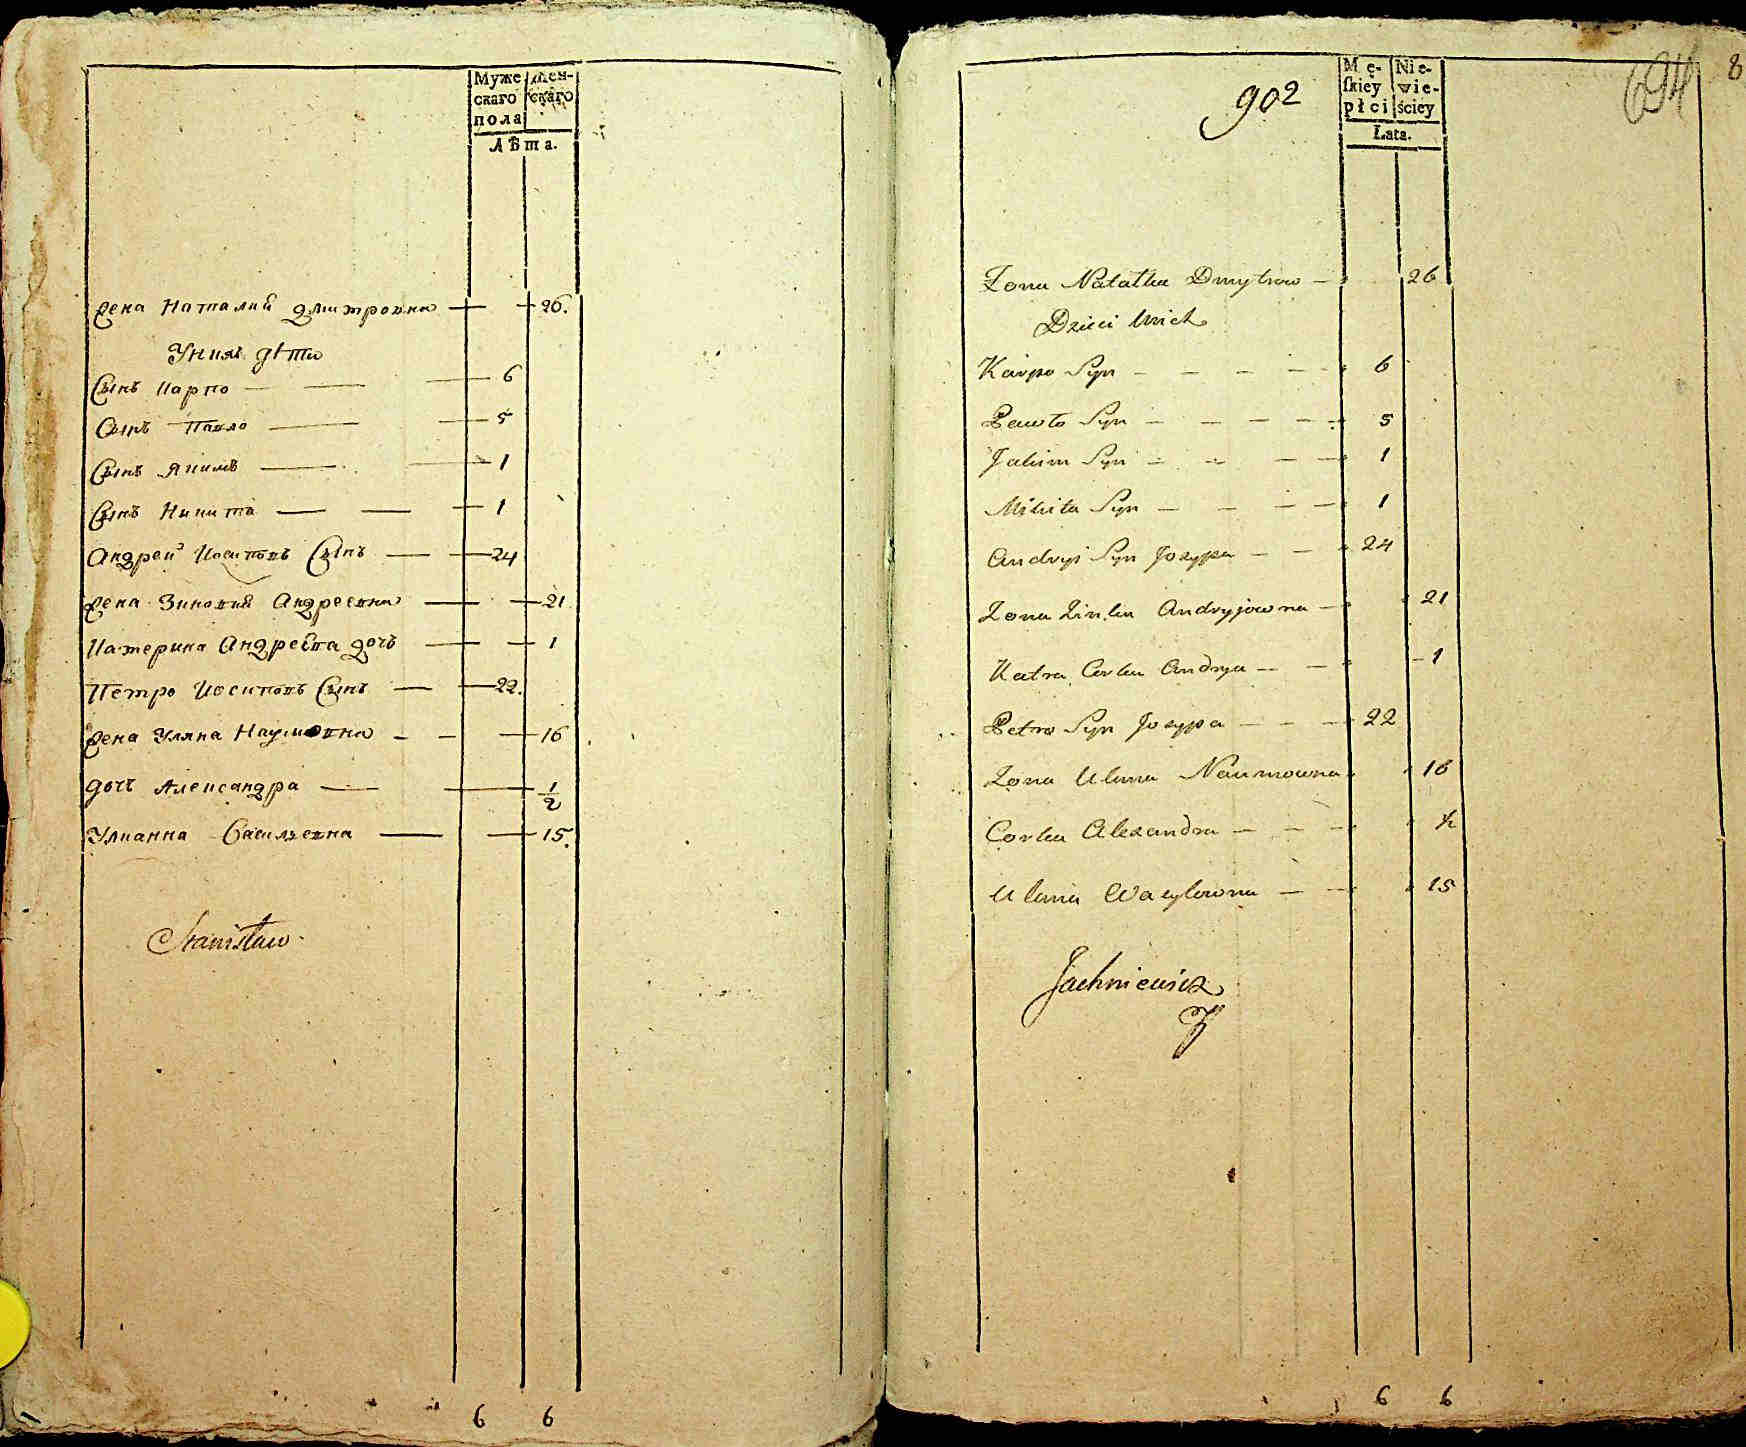 Муже Жен-
скаго скаго
пола
Лѣта.
Жена Наталия Дмитровна 26.
У нихъ дѣти
Сынъ Карпо 6
Сынъ Павло 5
Сынъ Якимъ 1
Сынъ Никита 1
Андрей Иосиповъ Сынъ 24
Жена Зиновия Андреевна 21
Катерина Андреева дочь 1
Петро Иосиповъ Сынъ 22.
Жена Уляна Наумовна 16
Дочь Александра 1/2
Улианна Васильевна 15.
Stanisław
6 6
902
694
8
Mę- Nie-
ſkiey wie-
płci ściey
Lata.
Zona Natalka Dmytrow 26
Dzieci Unich
Karpo Syn 6
Pawło Syn 5
Jakim Syn 1
Mikita Syn 1
Andryi Syn Jozypa 24
Zona Zinka Andryjowna 21
Katra Corka Andrya 1
Petro Syn Jozypa 22
Zona Ulana Naumowna 16
Corka Alexandra 1/2
Ulana Wasylowna 15
Jachniewicz
6 6